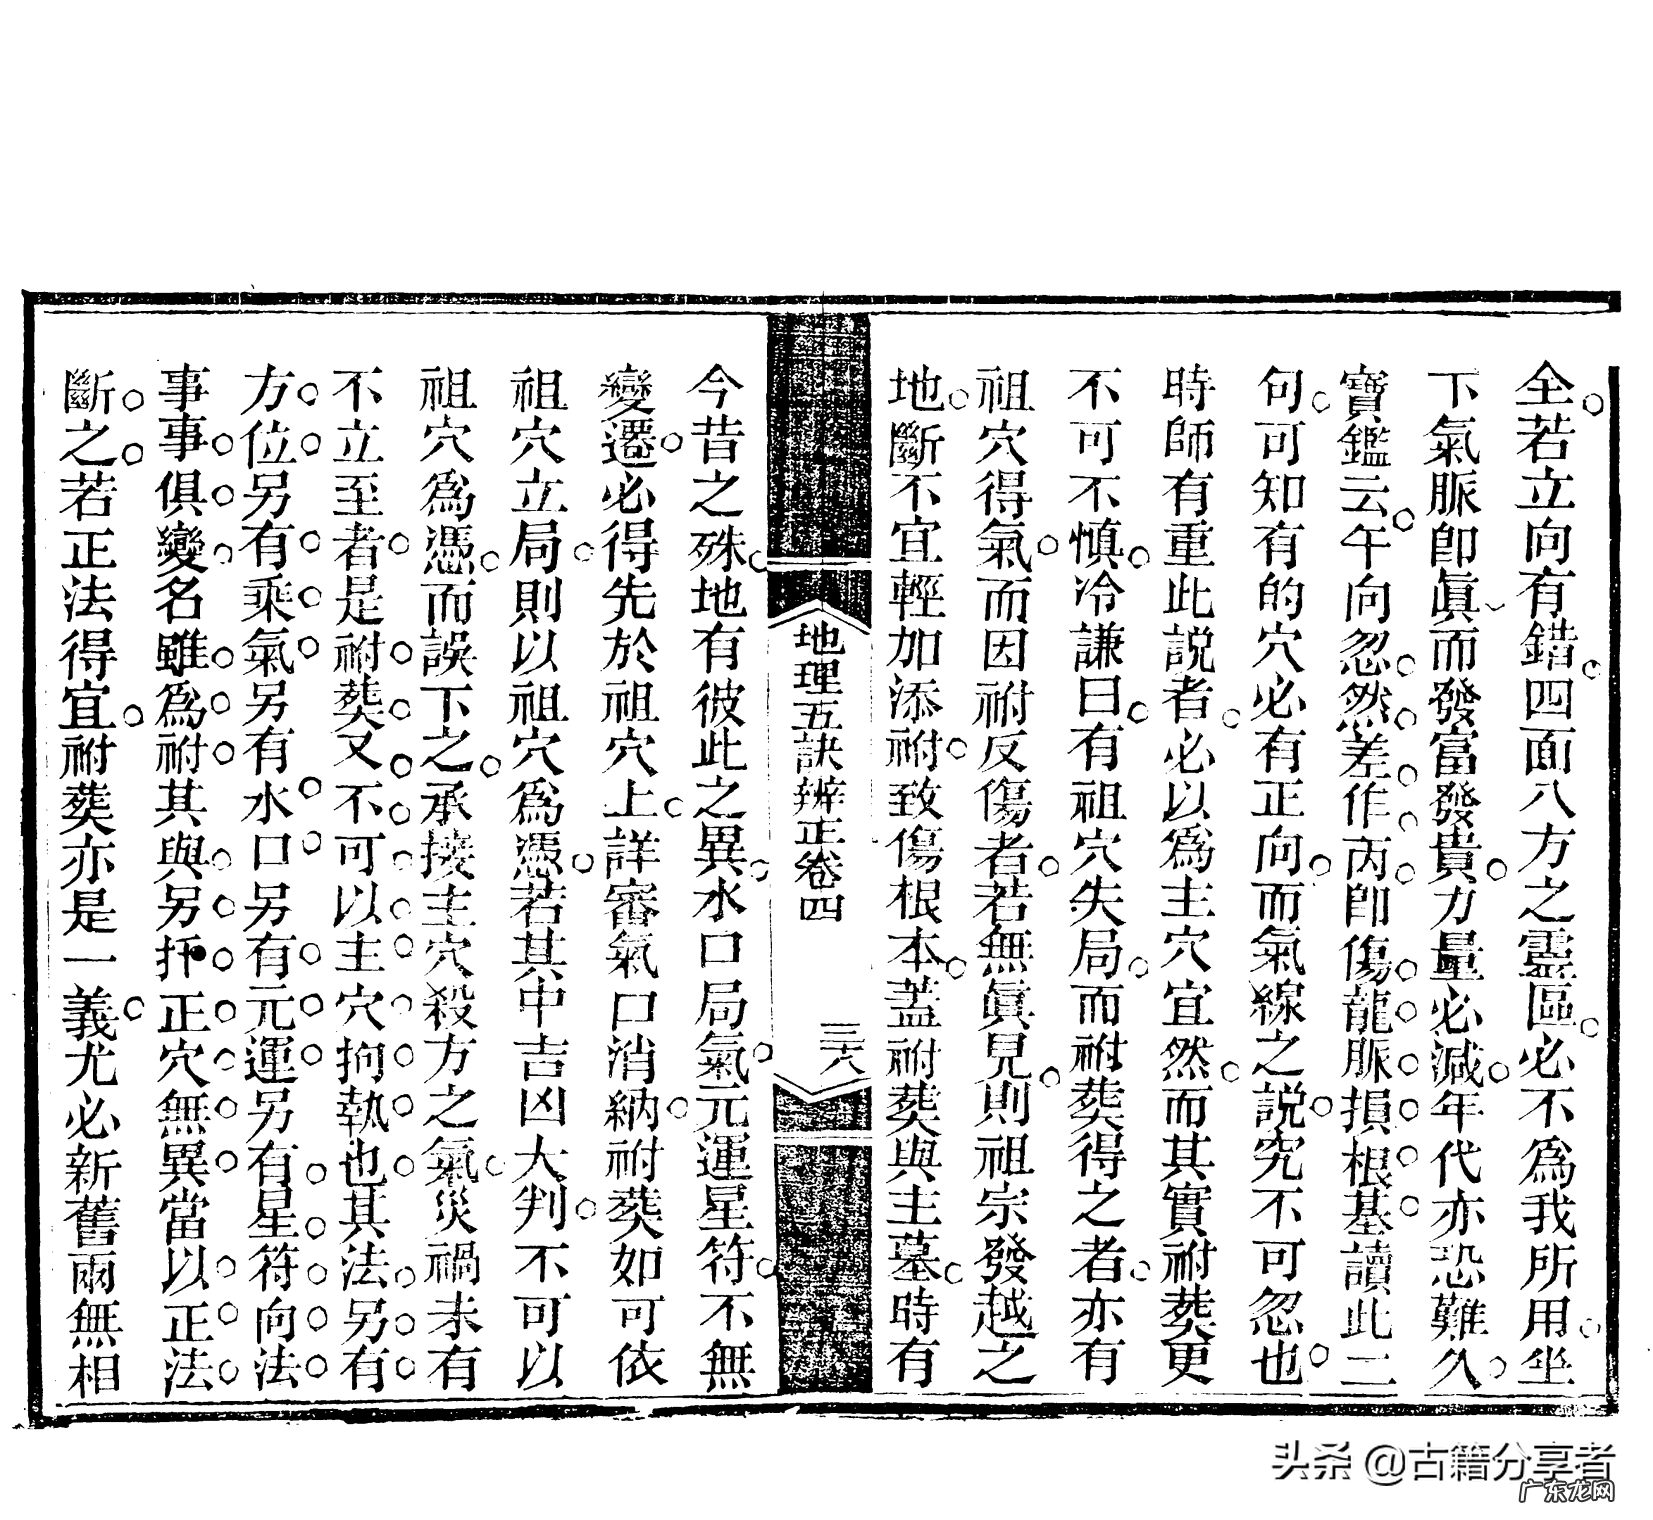 全若立向有錯四面八方之靈區必不為我所用坐
下氣脈卽眞而發富發貴力量必減年代亦恐難久
寶鑑云午向忽然差作丙卽傷龍脈損根基讀此二
句可知有的穴必有正向而氣線之説究不可忽也
時師有重此説者必以為主穴宜然而其實祔葬更
不可不愼冷謙曰有祖穴失局而祔葬得之者亦有
祖穴得氣而因祔反傷者若無眞見則祖宗發越之
地斷不宜輕加添祔致傷根本蓋祔葬與主墓時有
地理五訣辨正卷四 三六
今昔之殊地有彼此之異水口局氣元運星符不無
變遷必得先於祖穴上詳審氣口消納祔葬如可依
祖穴立局則以祖穴為憑若其中吉凶大判不可以
祖穴為憑而誤下之承接主穴殺方之氣災禍未有
不立至者是祔葬又不可以主穴拘執也其法另有
方位另有乘氣另有水口另有元運另有星符向法
事事俱變名雖為祔其與另扦正穴無異當以正法
斷之若正法得宜祔葬亦是一義尤必新舊兩無相
头条 @古籍分享者
广东龙网